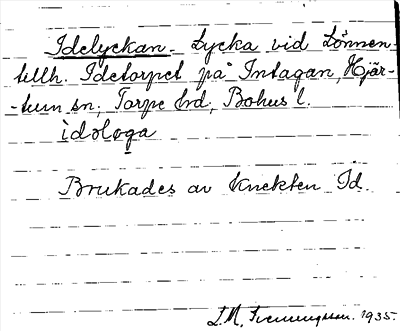 Idelyckan - Lycka vid Lönnen-
tillh. Idetorpet på Intagan, Hjär-
-tum sn, Torpe hd, Bohus l.
idəløga
Brukades av knekten Id.
L.M. 1935.